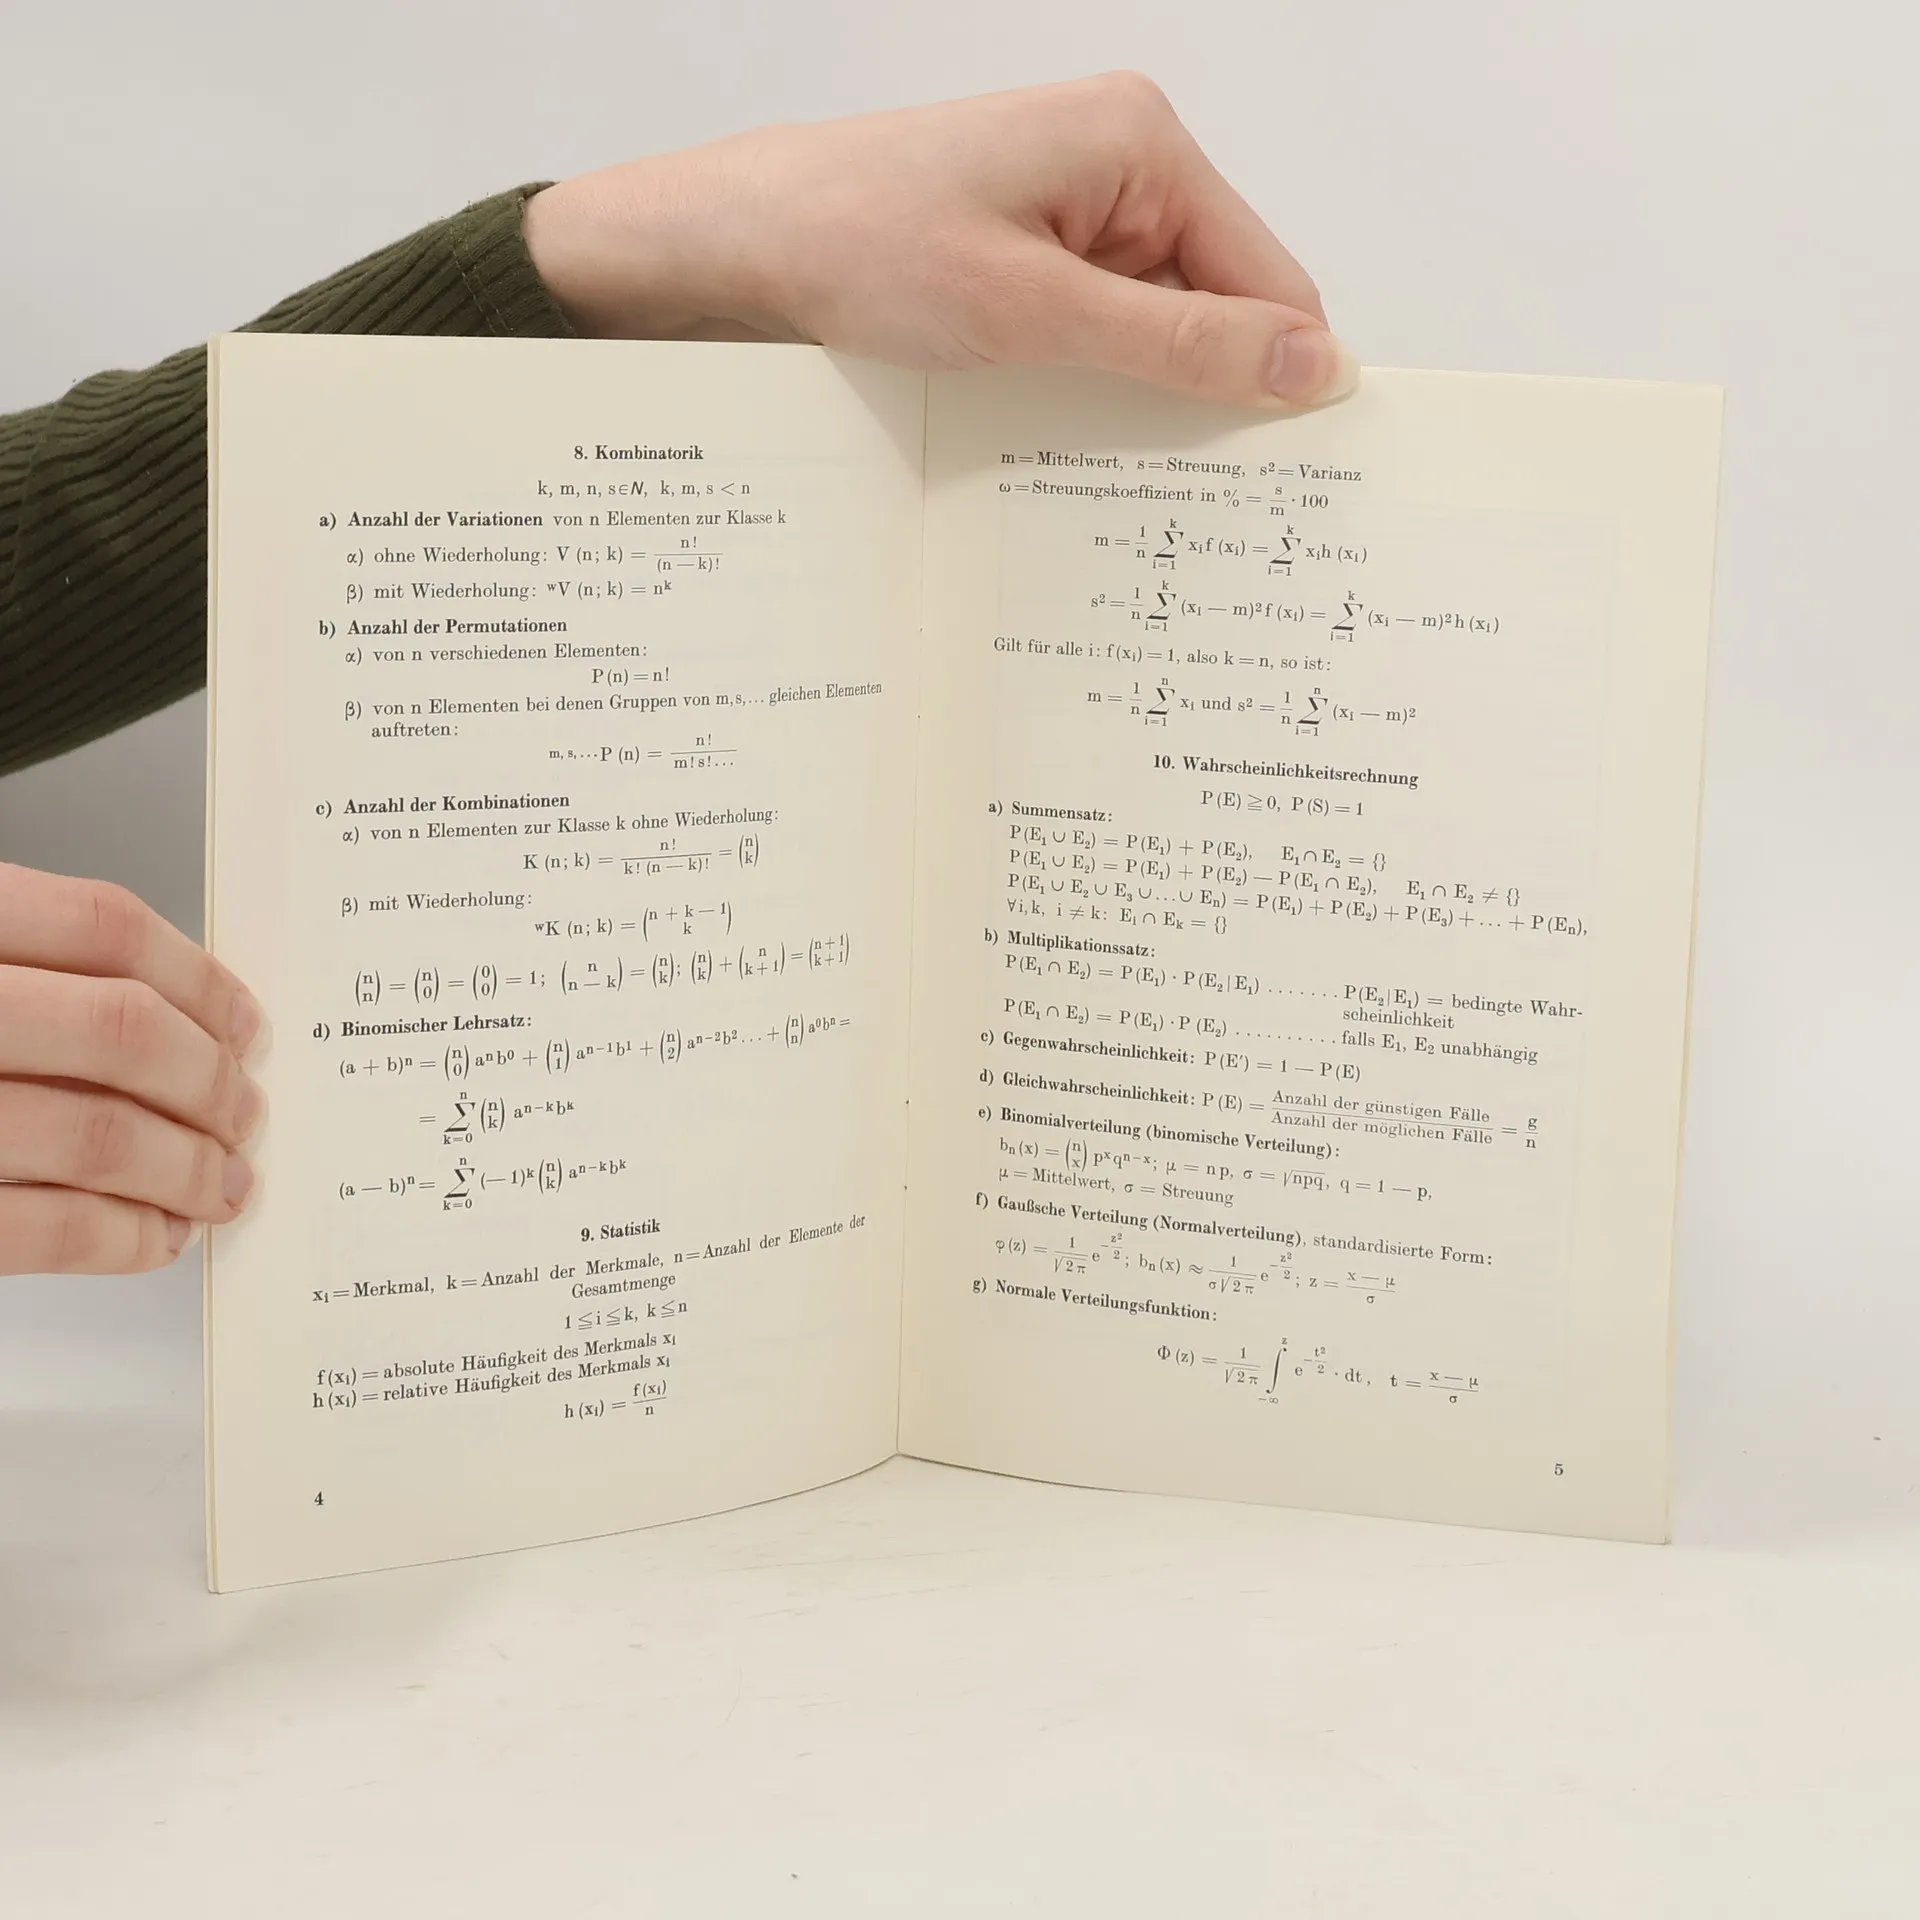 8. Kombinatorik
k, m, n, s∈N, k, m, s < n
a) Anzahl der Variationen von n Elementen zur Klasse k
α) ohne Wiederholung: V (n; k) = n! / (n — k)!
β) mit Wiederholung: ʷV (n; k) = nᵏ
b) Anzahl der Permutationen
α) von n verschiedenen Elementen:
P (n) = n!
β) von n Elementen bei denen Gruppen von m, s, ... gleichen Elementen
auftreten:
m, s, ...P (n) = n! / m! s! ...
c) Anzahl der Kombinationen
α) von n Elementen zur Klasse k ohne Wiederholung:
K (n; k) = n! / k! (n — k)! = (n k)
β) mit Wiederholung:
ʷK (n; k) = (n + k — 1 k)
(n n) = (n 0) = (0 0) = 1; (n n — k) = (n k); (n k) + (n k + 1) = (n + 1 k + 1)
d) Binomischer Lehrsatz:
(a + b)ⁿ = (n 0) aⁿb⁰ + (n 1) aⁿ⁻¹b¹ + (n 2) aⁿ⁻²b² ... + (n n) a⁰bⁿ =
= n ∑ k=0 (n k) aⁿ⁻ᵏbᵏ
(a — b)ⁿ = n ∑ k=0 (—1)ᵏ (n k) aⁿ⁻ᵏbᵏ
9. Statistik
xᵢ = Merkmal, k = Anzahl der Merkmale, n = Anzahl der Elemente der
Gesamtmenge
1 ≦ i ≦ k, k ≦ n
f (xᵢ) = absolute Häufigkeit des Merkmals xᵢ
h (xᵢ) = relative Häufigkeit des Merkmals xᵢ
h (xᵢ) = f (xᵢ) / n
4
m = Mittelwert, s = Streuung, s² = Varianz
ω = Streuungskoeffizient in % = s / m · 100
m = 1 / n k ∑ i=1 xᵢf (xᵢ) = k ∑ i=1 xᵢh (xᵢ)
s² = 1 / n k ∑ i=1 (xᵢ — m)² f (xᵢ) = k ∑ i=1 (xᵢ — m)² h (xᵢ)
Gilt für alle i: f (xᵢ) = 1, also k = n, so ist:
m = 1 / n n ∑ i=1 xᵢ und s² = 1 / n n ∑ i=1 (xᵢ — m)²
10. Wahrscheinlichkeitsrechnung
P (E) ≧ 0, P (S) = 1
a) Summensatz:
P (E₁ ∪ E₂) = P (E₁) + P (E₂), E₁ ∩ E₂ = {}
P (E₁ ∪ E₂) = P (E₁) + P (E₂) — P (E₁ ∩ E₂), E₁ ∩ E₂ ≠ {}
P (E₁ ∪ E₂ ∪ E₃ ∪ ... ∪ Eₙ) = P (E₁) + P (E₂) + P (E₃) + ... + P (Eₙ),
∀ i, k, i ≠ k: Eᵢ ∩ Eₖ = {}
b) Multiplikationssatz:
P (E₁ ∩ E₂) = P (E₁) · P (E₂|E₁) ....... P (E₂|E₁) = bedingte Wahr-
scheinlichkeit
P (E₁ ∩ E₂) = P (E₁) · P (E₂) .......... falls E₁, E₂ unabhängig
c) Gegenwahrscheinlichkeit: P (E′) = 1 — P (E)
d) Gleichwahrscheinlichkeit: P (E) = Anzahl der günstigen Fälle / Anzahl der möglichen Fälle = g / n
e) Binomialverteilung (binomische Verteilung):
bₙ (x) = (n x) pˣqⁿ⁻ˣ; μ = n p, σ = √npq, q = 1 — p,
μ = Mittelwert, σ = Streuung
f) Gaußsche Verteilung (Normalverteilung), standardisierte Form:
φ (z) = 1 / √2 π e^(−z²/2); bₙ (x) ≈ 1 / σ√2 π e^(−z²/2); z = x — μ / σ
g) Normale Verteilungsfunktion:
Φ (z) = 1 / √2 π z ∫ −∞ e^(−t²/2) · dt, t = x — μ / σ
5